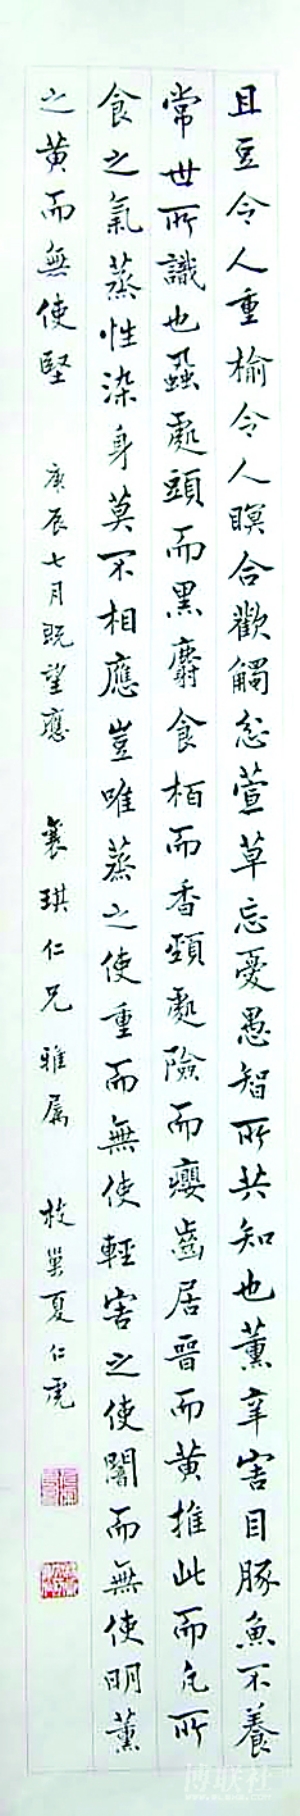 且豆令人重榆令人瞑合歡觸忿萱草忘憂愚智所共知也薰辛害目豚魚不養
常世所識也蝨處頭而黑麝食柏而香頸處險而癭齒居晉而黃推此而凡所
食之氣蒸性染身莫不相應豈唯蒸之使重而無使輕害之使闇而無使明薰
之黃而無使堅 庚辰七月既望應 襄琪仁兄雅屬 枝巢夏仁虎
博联社